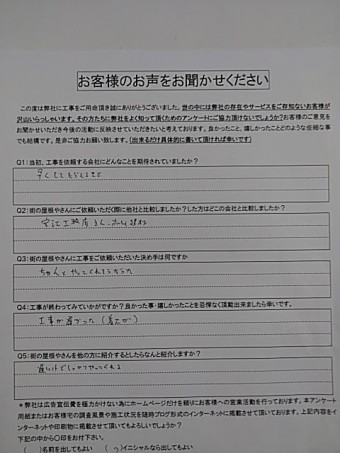 お客様のお声をお聞かせください
この度は弊社に工事をご用命頂き誠にありがとうございました。世の中には弊社の存在やサービスをご存知ないお客様が
沢山いらっしゃいます。その方たちに弊社をよく知って頂くためのアンケートにご協力頂けないでしょうか?お客様のご意見を
お聞かせいただき今後の活動に反映させていただきたいと考えております。良かったこと、嬉しかったことどのような些細な事
でも結構です。是非ご協力お願い致します。(出来るだけ具体的に書いて頂ければ幸いです)
Q1:当初、工事を依頼する会社にどんなことを期待されていましたか?
早くしてもらえること
Q2:街の屋根やさんにご依頼いただく際に他社と比較しましたか?した方はどこの会社と比較しましたか?
Q3:街の屋根やさんに工事をご依頼いただいた決め手は何ですか
ちゃんとやってくれそうだった
Q4:工事が終わってみていかがですか?良かった事・嬉しかったことを忌憚なく頂戴出来ましたら幸いです。
工事が
Q5:街の屋根やさんを他の方に紹介するとしたらなんと紹介しますか?
やってくれる
*弊社は広告宣伝費を極力かけない為にホームページだけを頼りにお客様への営業活動を行っております。本アンケート
用紙またはお客様宅の調査風景や施工状況を随時ブログ形式のインターネットに掲載させて頂いております。上記内容をイ
ンターネットや印刷物に掲載させて頂いてもよろしいでしょうか?
下記の中から〇印をお付下さい。
( )名前を出してもよい ( )イニシャルなら出してもよい